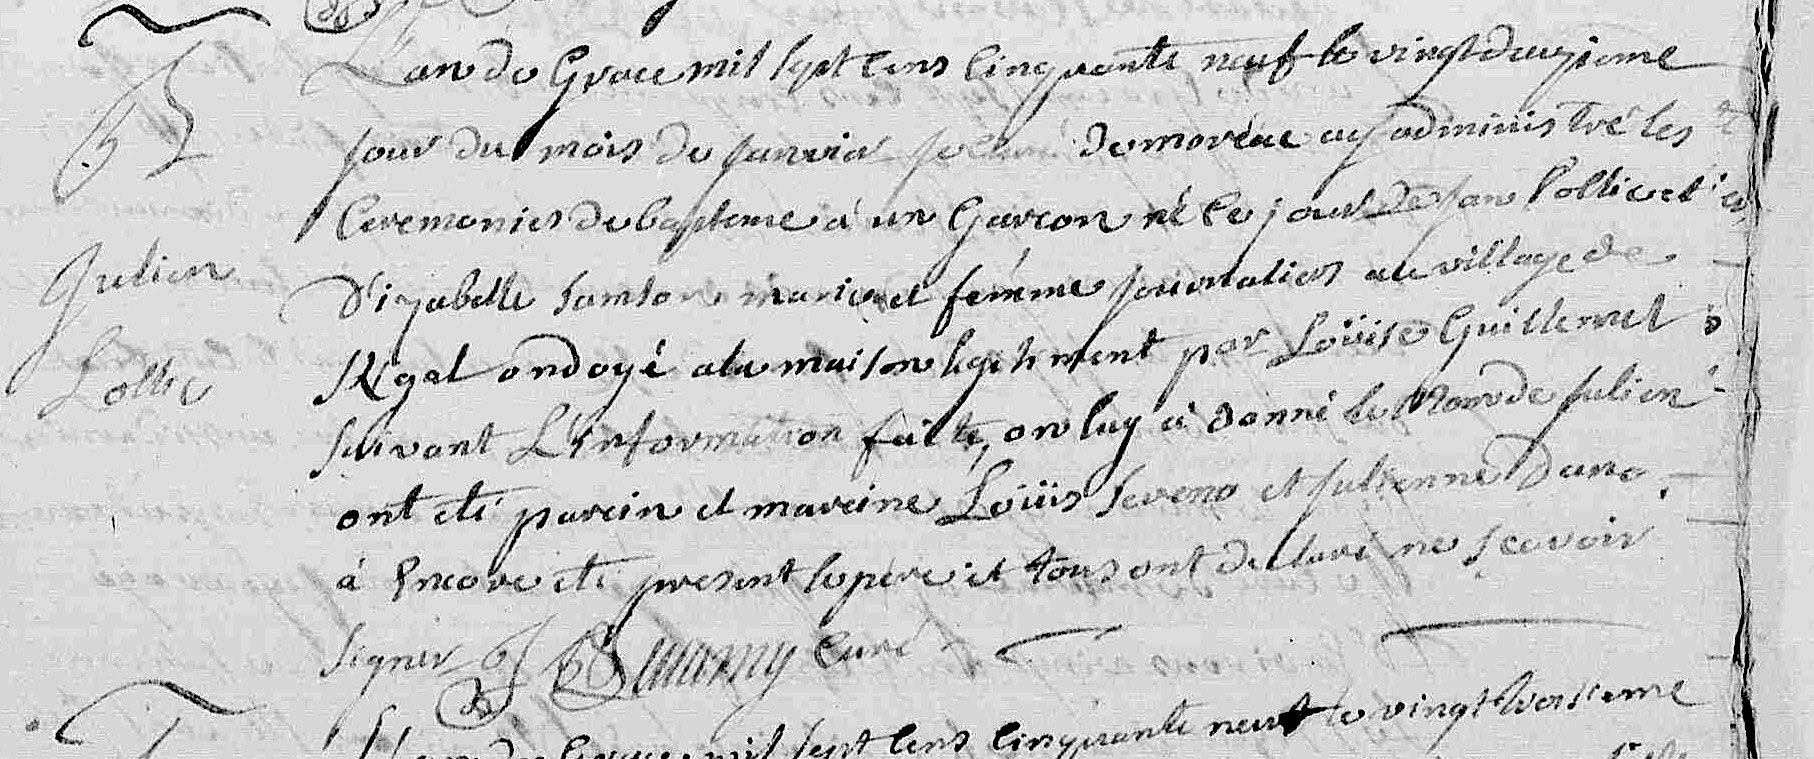 L'an de Grace mil sept cens cinquante neuf le vingt deuxieme
jour du mois de janvier je curé de moréac ay administré les
Ceremonies du bapteme à un Garcon né ce jour de jan Lollic et
d'izabelle Samson marie et femme journaliers au village de
Julien
Rigal ondoyé ala maison legitiment par Loüise Guillemet
Lollic
suivant L'information faite, on luy à donné le Nom de julien
ont eté parein et mareine Loüis Seveno et julienne Dano
à Encore eté present le père et tous ont declaré ne scavoir
signer curé
L'an de Grace mil sept cens cinquante neuf le vingt troisieme